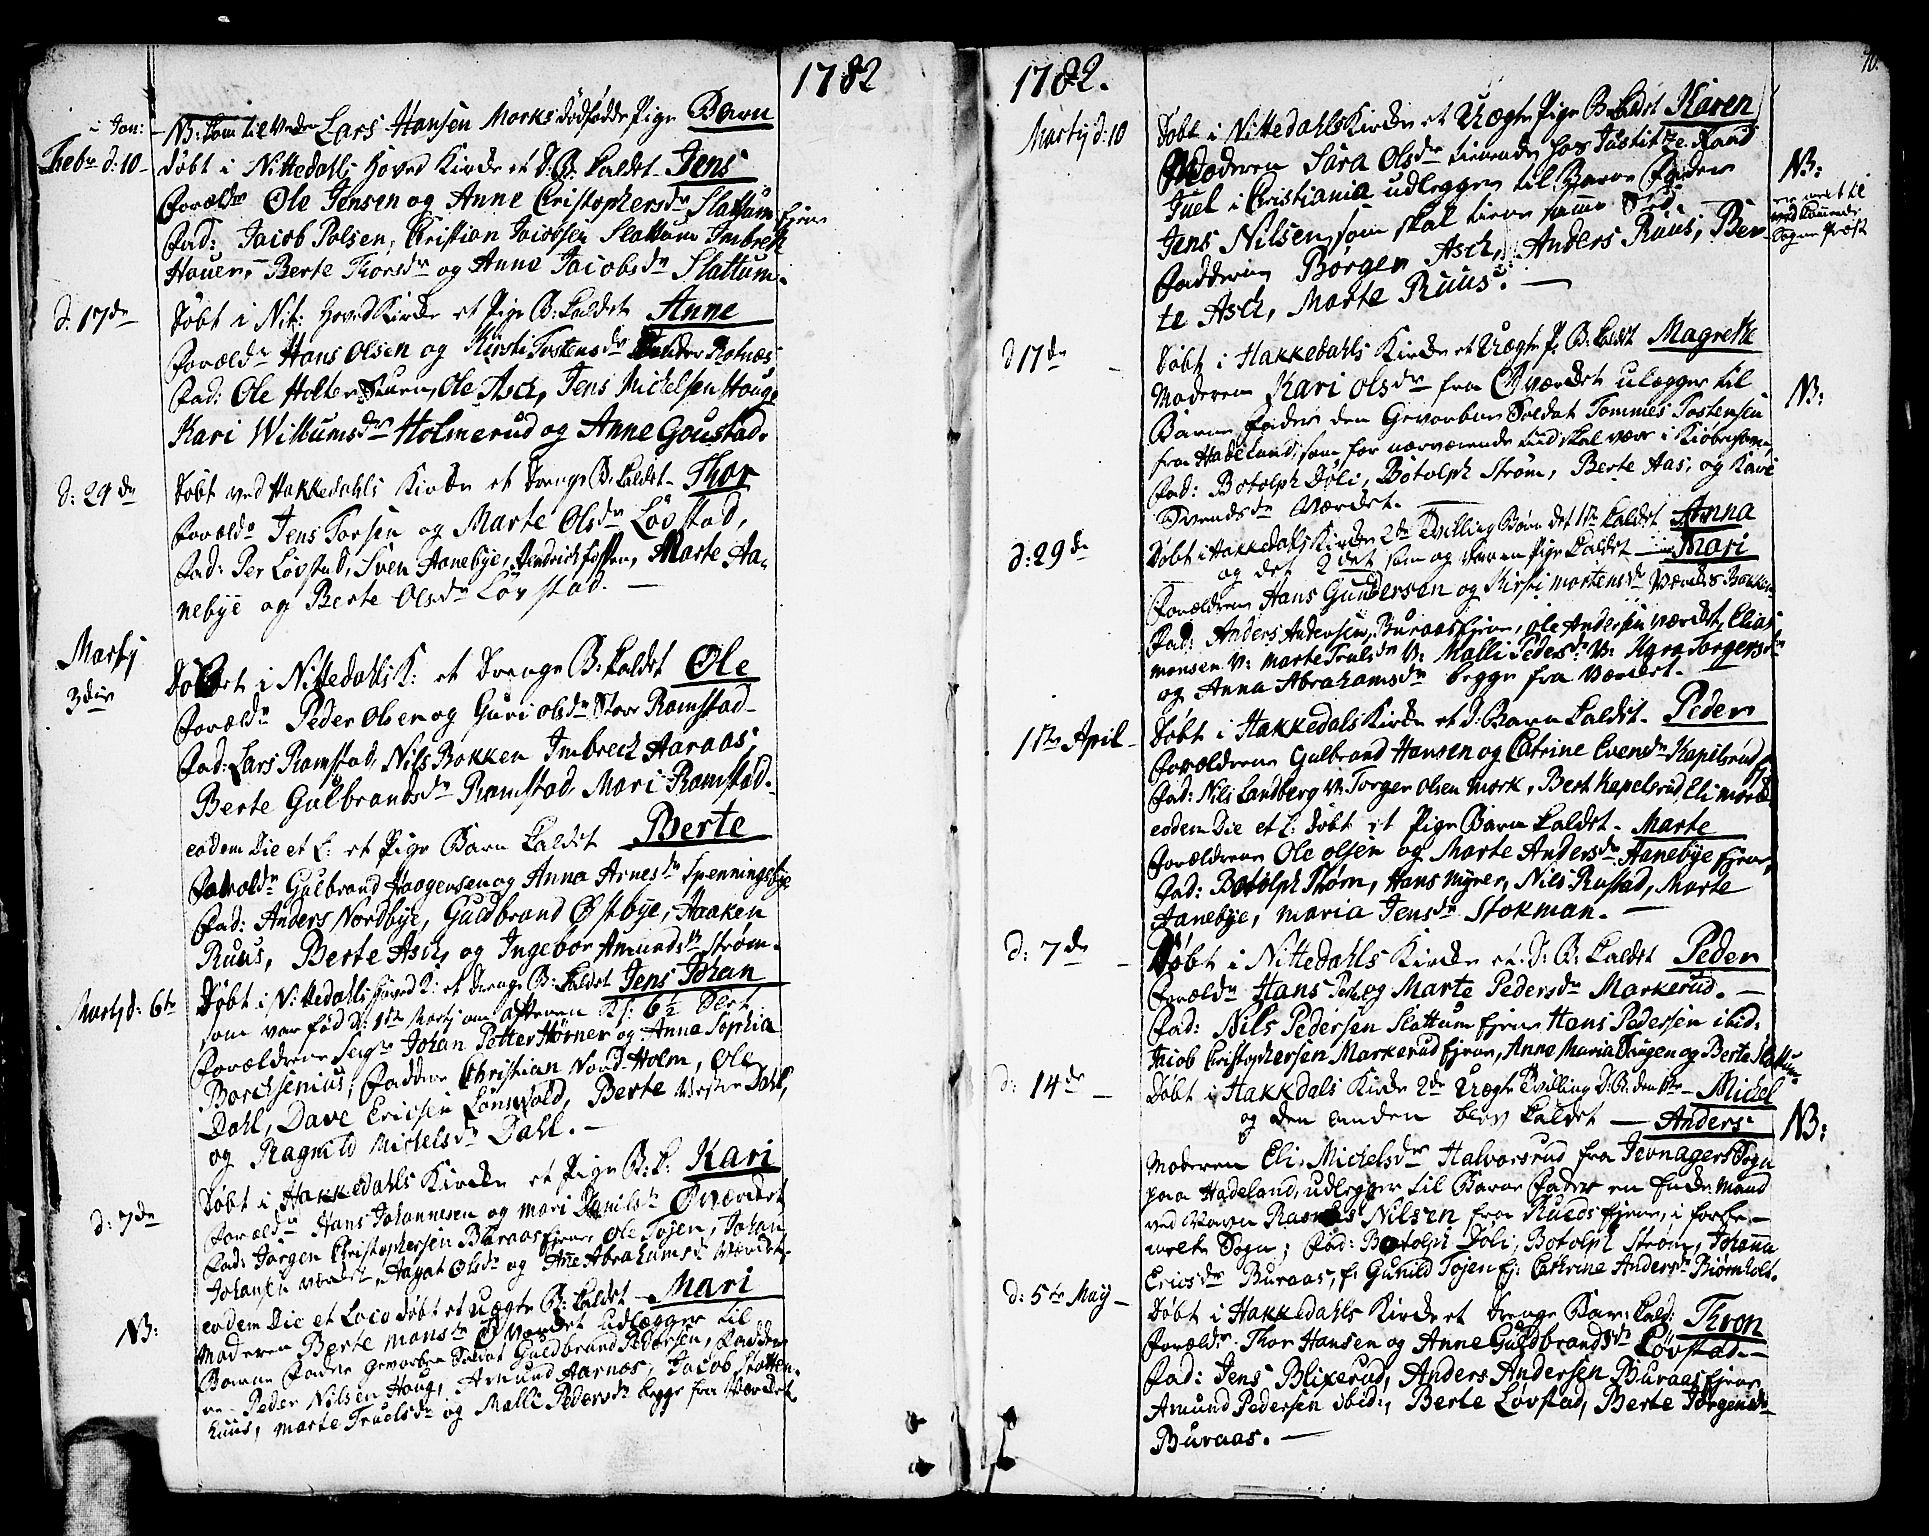 1782
i Jan: – NB: kom til Verden Lars Hansen Morks dødfødde Pige Barn
Febr d: 10 – Døbt i Nittedahls Hoved Kirke et D: B: kaldet – Jens
Foreldr Ole Jensen og Anne Christophersdr Slattum Ejene
Fad: Jacob Polsen, Christian Jacobsen Slattum Imbreth
Hauer, Berte Thorsdr og Anne Jacobsdr Slattum.
d: 17de Døbt i Nit: Hoved Kirke et Pige B: kaldet Anne
Foreldr Hans Olsen og Kirsti Tostensdr Rotnæs
Fad: Ole Holter, Ole Asch, Jens Michelsen Houge
Kari Willumsdr Holmerud og Anne Goustad.
d: 29de Døbt ved Hakkedahls Kirke et Drenge B: kaldet – Thor
Foreldr Jens Torsen og Marte Olsdr Løvstad,
Fad: Per Løvstad, Sven Hanebye, Hendrich Fossen, Marte Ha-
nebye og Berte Olsdr Løvstad. –
Martij 3die Døbet i Nittedahls K: et Drenge B: kaldet Ole
Foreldr Peder Olsen og Guri Olsdr Store Ramstad –
Fad: Lars Ramstad, Nils Bakken Imbrech Aaraas,
Berte Gulbrandsdr Ramstad, Mari Ramstad.
eodem Die et L: et Pige Barn kaldet Berte
Foreldr Gulbrand Haagensen og Anna Arnesdr Spenningsbye
Fad: Anders Nordbye, Guldbrand Østbye, Haaken
Ruus, Berte Asch, og Ingebor Amundsdr Strøm.
Martij d: 6te Døbt i Nittedahls Hoved K: et Drenge B: kaldet Jens Johan
som var fød d: 1ste Martij om Aftenen Kl: 6½ Slet,
Forældrene Sugr Johan Petter Hørner og Anna Sophia
Borchsenius, Faddere Christian Nord-Holm, Ole
Dahl, Dave Ericsen Lønsvold, Berte Vestre Dahl,
og Ragnild Michelsdr Dahl. –
d: 7de Døbt i Hakkedahls Kirke et Pige B: k: Kari
Foreldr Hans Johannesen og Mari Danielsdr Øværket
Fad: Jørgen Christophersen Buraas Ejene, Ole Tøjen, Johan
Johansen Værket, Aagat Olsdr og Anne Abrahamsdr Værket,
NB: eodem Die et Loco døbt et uægte B: kaldet – Mari
Moderen Berte Monsdr Øværket udlægger til
Barne Fader Gevorben Soldat Guldbrand Pedersen, Fadde-
re – Peder Nilsen Haug, Amund Aarnæs, Jacob Slatten-
huus, Marte Truelsdr og Malli Pedersdr begge fra Værket
1782. 70.
Martij d: 10 Døbt i Nittedahls Kirke et Uægte Pige B: kaldet Karen
Moderen Sara Olsdr tienende hos Justitz: Raad
Juel i Christiania udlegger til Barne Fader NB:
Jens Nilsen, som skal tiene samme Sted.
Fadderne Børger Asch, Anders Ruus, Ber-
te Asch, Marte Ruus. –
været til
Sogne Præst
d 17de – Døbt i Hakkedahls Kirke et Uægte P: B: kaldet Magrethe
Moderen Kari Olsdr fra Øværket ulægger til NB:
Barne Fader den Gevorbne Soldat Tommes Tostensen
fra Hadeland, som for nærværende tid skal være i Kiøbenhavn,
Fad: Botolph Døli, Botolph Strøm, Berte Aas, og Kari
Svendsdr Værket. –
d: 29de Døbt i Hakkedals Kirke 2de Tvilling Børn det 1ste kaldet Anna
og det 2det som og var en Pige kaldet – Mari
Forældrene Hans Gundersen og Kirsti Mortensdr Værkets Bakken
Fad: Anders Andersen Buraas Ejene, Ole Andersen Værket, Elias
Monsen V: Marte Trulsdr V: Malli Pedersdr V: Kara Torgersdr
og Anna Abrahamsdr begge fra Værket.
1ste April – Døbt i Hakkedals Kirke et D: Barn kaldet – Peder
Forældrene Gulbrand Hansen og Catrine Evensdr Kapelsrud Ej:
Fad: Nils Landberg V: Torger Olsen Mork, Bert Kapelsrud, Eli Mork
eodem Die et L: døbt et Pige Barn kaldet – Marte
Forældrene Ole Olsen og Marte Andersdr Hanebye Ejene,
Fad: Botolph Thorn, Hans Myrer, Nils Rustad, Marte
Hanebye, Maria Jensdr Stokman. –
d: 7de – Døbt i Nittedahls Kirke et D: B: kaldet Peder
Foreldr Hans Peds: og Marte Pedersdr Markerud. –
Fad: Nils Pedersen Slattum Ejene Hans Pedersen ibid:
Jacob Christophersen Markerud Ejene, Anne Maria Haugen og Berte Slattum.
d: 14de – Døbt i Hakkdals Kirke 2de Uægte Tvilling D: B: den 1ste – Michel
og den anden blev kaldet – Anders NB:
Moderen Eli Michelsdr Halvorsrud fra Jevnagers Sogn
paa Hadeland, udlegger til Barne Fader en Enke Mand
ved Navn Rasmus Nilsen fra Rueds Ejene, i forbe-
melte Sogn; Fad: Botolph Døli, Botolph Strøm, Johanna
Ericsdr Buraas, E: Gunild Tøjen Ej: Cathrine Andersdr Biørnholt.
d: 5te May – Døbt i Hakkedahls Kirke et Drenge Barn kald: Thron
Foreldr Thor Hansen og Anne Guldbrandsdr Løvstad. –
Fad: Jens Blixerud, Anders Andersen Buraas Ejene
Amund Pedersen ibid:, Berte Løvstad, Berte Jørgensdr
Buraas. –